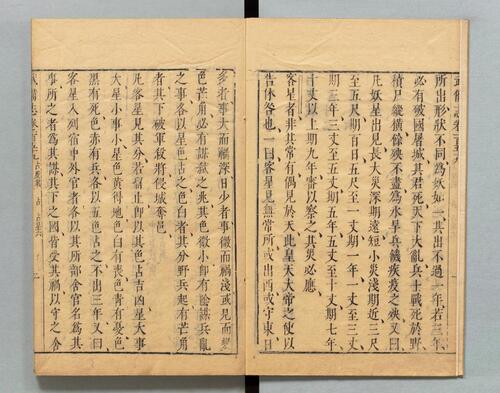 武備志卷一百五十九
所出形狀不同為妖如一其出不過一年若三年
必有破國屠城其君死天下大亂兵士戰死於野
積尸縱橫餘殃不盡為水旱兵饑疾疫之殃又曰
凡妖星出見長大災深期遠短小災淺期近三尺
至五尺期百日五尺至一丈期一年一丈至三丈
期三年三丈至五丈期五年五丈至十丈期七年
十丈以上期九年審以察之其災必應
客星者非其常有偶見於天此皇天大帝之使以
告休咎也一曰客星見無常所或出西或守東日
多者事大而禍深日少者事微而禍淺或見而變
色芒角必有謀叛之兆其色微小即有陰謀兵亂
之事各以星色占之色白者其分野兵起有芒角
者其下破軍殺將侵城奪邑
凡客星見其分若留止即以其色占吉凶星大事
大星小事小星色黃得地色白有喪色青有憂色
黑有死色赤有兵各以五色占之不出三年又曰
客星入列宿中外官者各以其所部舍官名為其
事所之者為其謀其下之國皆受其禍以守之舍
武備志卷一百五十九 占度載 占 占星六